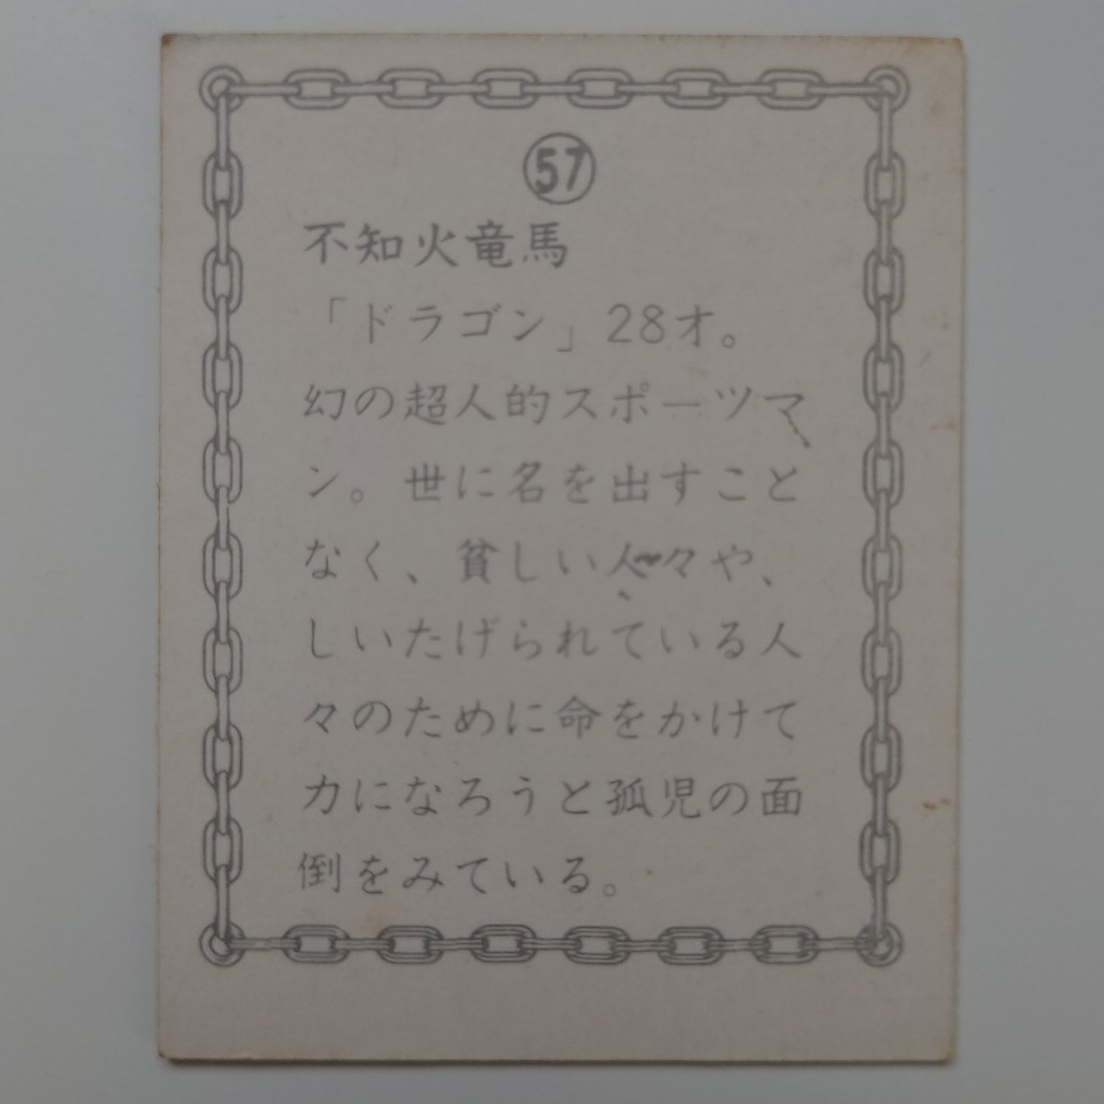 57
不知火竜馬
「ドラゴン」28才。
幻の超人的スポーツマ
ン。世に名を出すこと
なく、貧しい人々や、
しいたげられている人
々のために命をかけて
力になろうと孤児の面
倒をみている。